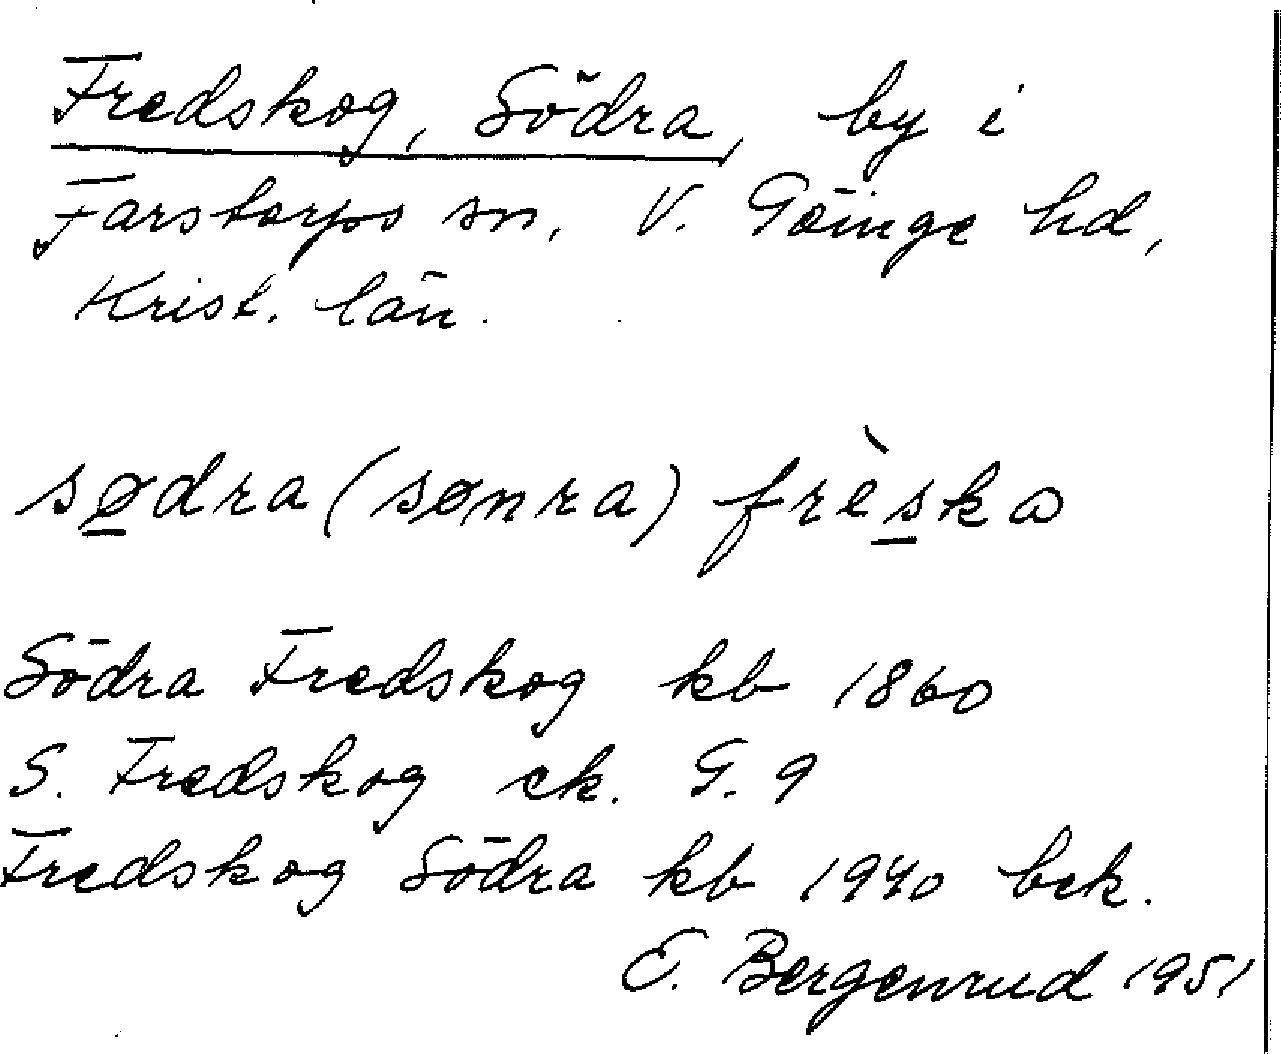 Fredskog, Södra, by i
Farstorps sn, V. Göinge hd,
Krist. län.
sødra (sønra) frèska
Södra Fredskog kb 1860
S. Fredskog ek. G. 9
Fredskog Södra kb 1940 bek.
E. Bergenrud 1951